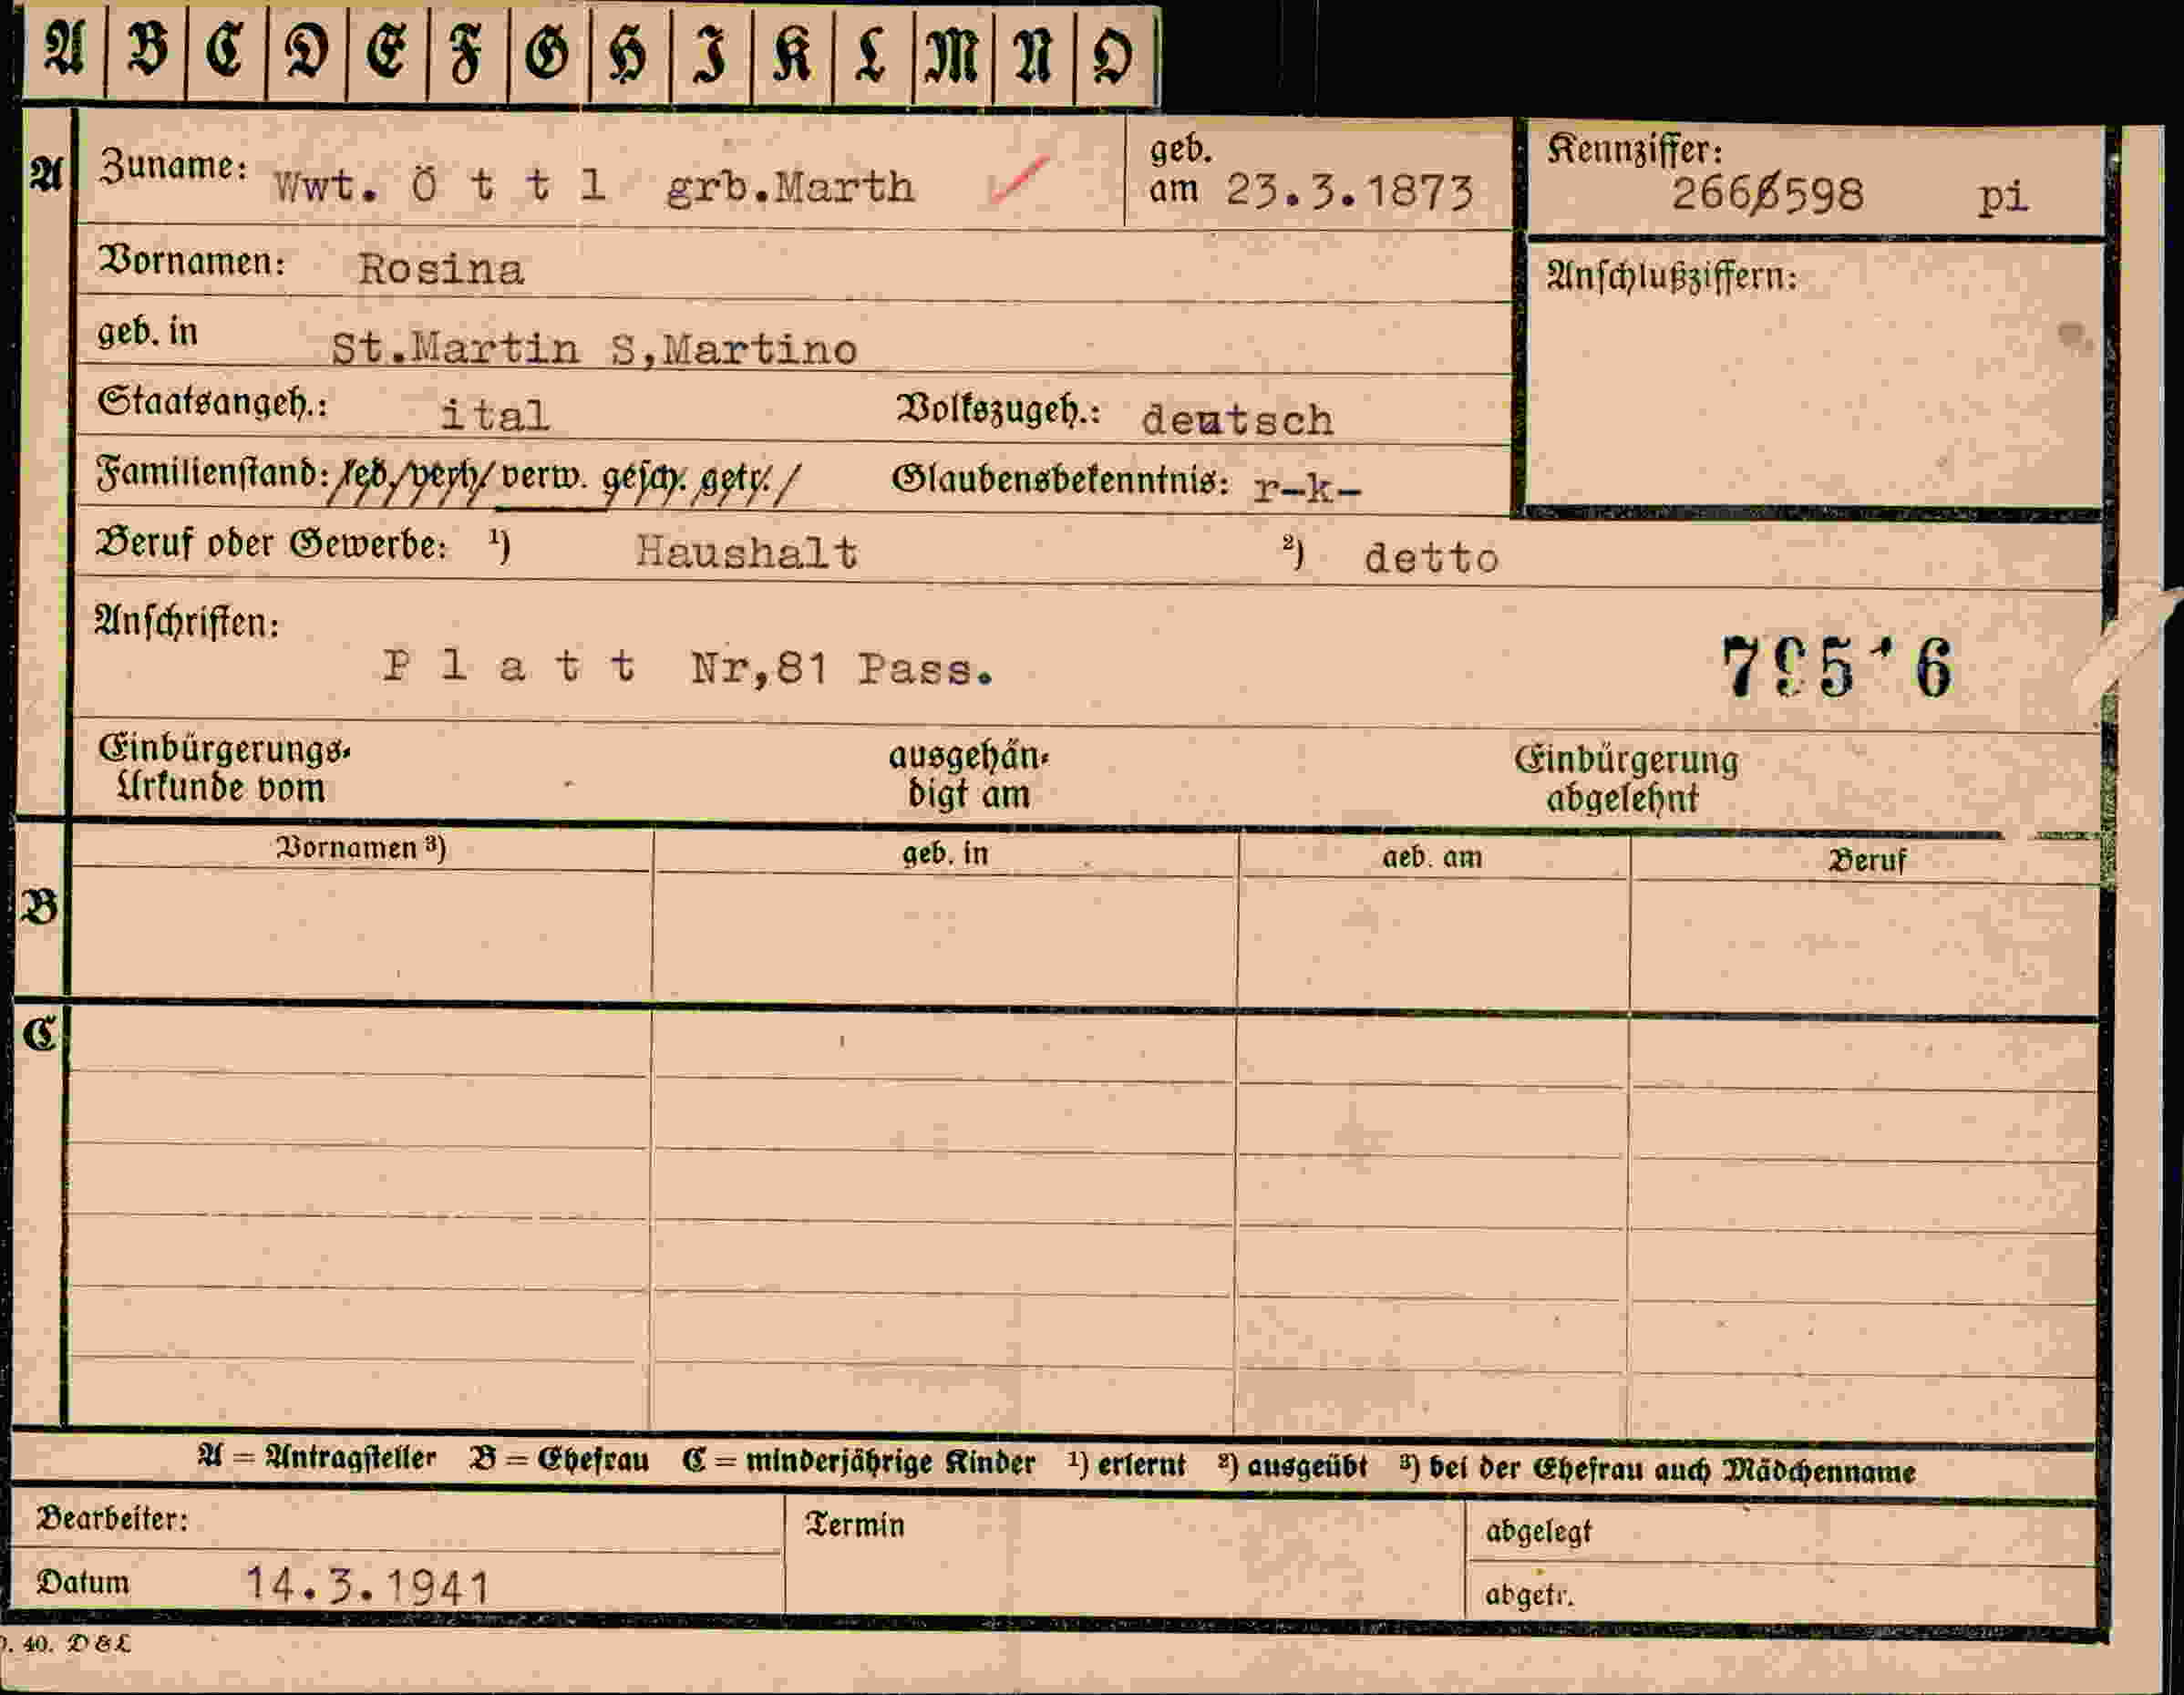 A B C D E F G H I K L M N O
A Zuname: Wwt. Ö t t l grb.Marth geb. am 23.3.1873 Kennziffer: 266598 pi
Vornamen: Rosina Anschlußziffern:
geb. in St.Martin S,Martino
Staatsangeh.: ital Volkszugeh.: deutsch
Familienstand: led. verh. verw. gesch. getr. Glaubensbekenntnis: r-k-
Beruf oder Gewerbe: ¹) Haushalt ²) detto
Anschriften:
P l a t t Nr,81 Pass.
Einbürgerungs-Urkunde vom ausgehändigt am Einbürgerung abgelehnt
Vornamen ³) geb. in geb. am Beruf
B
C
A = Antragsteller B = Ehefrau C = minderjährige Kinder ¹) erlernt ²) ausgeübt ³) bei der Ehefrau auch Mädchenname
Bearbeiter: Termin abgelegt
Datum 14.3.1941 abgetr.
40. D&L